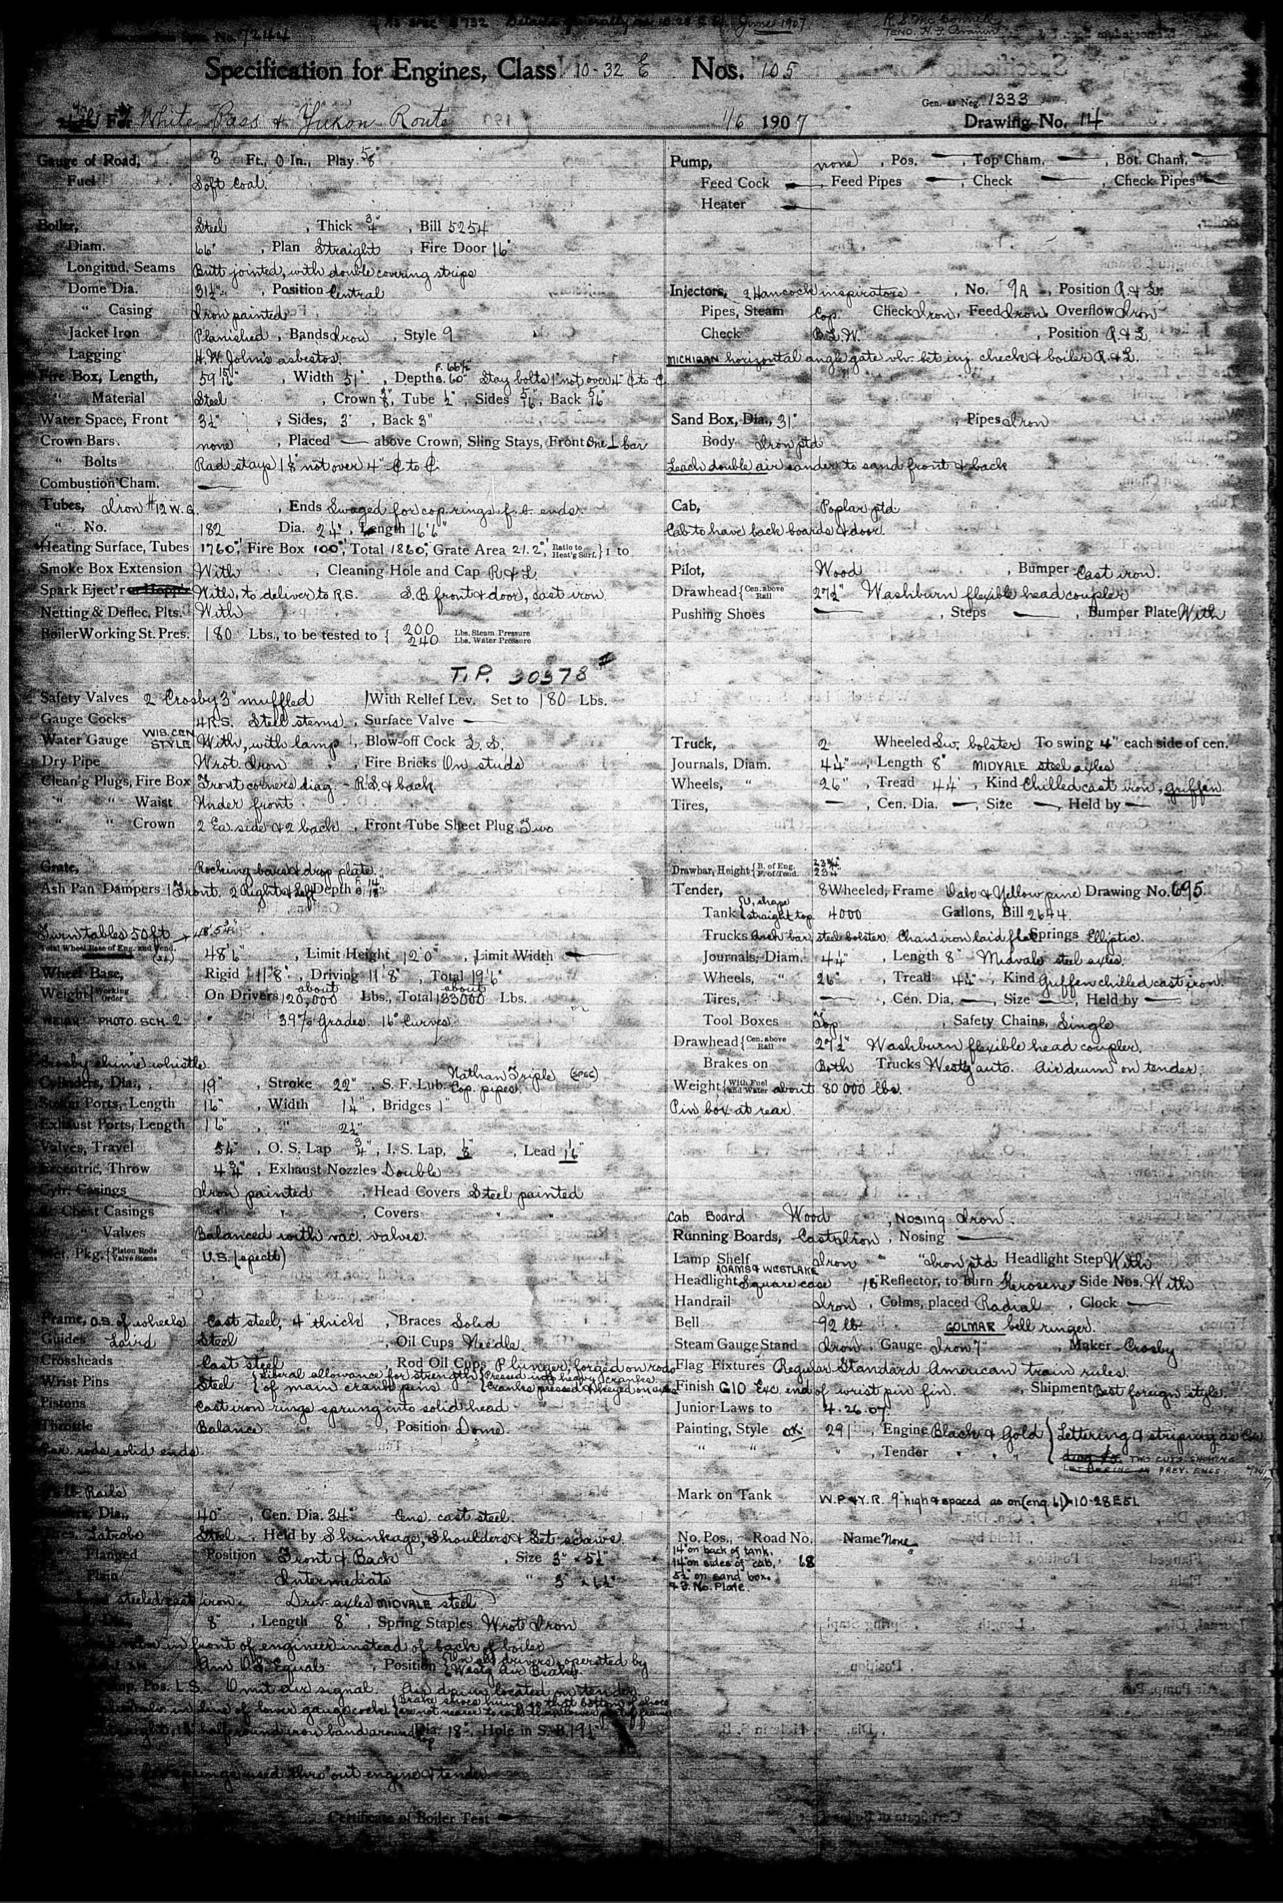 No. 7244
June 1907
Specification for Engines, Class 10-32 E Nos. 105
Gen. as Neg. 1333
For White Pass & Yukon Route
1/6 1907 Drawing No. 14
Gauge of Road, 3 Ft., 0 In., Play 5/8"
Fuel Soft Coal.
Boiler, Steel, Thick 3/4", Bill 5254
Diam. 66", Plan Straight, Fire Door 16"
Longitud. Seams Butt jointed, with double covering strips
Dome Dia. 31½", Position Central
" Casing Iron painted
Jacket Iron Planished, Bands Iron, Style 9
Lagging H. W. John's asbestos.
Fire Box, Length, 59 15/16", Width 51", Depth F. 66½ B. 60" Stay bolts 1" not over 4" C to C
" Material Steel, Crown 3/8, Tube ½", Sides 5/16, Back 5/16
Water Space, Front 3½", Sides, 3", Back 3"
Crown Bars. none, Placed — above Crown, Sling Stays, Front one ⊥ bar
" Bolts Rad. stays 1⅛" not over 4" C to C.
Combustion Cham. —
Tubes, Iron #12 W.G., Ends Swaged for cop. rings f. b. ends.
" No. 182 Dia. 2¼", Length 16'6"
Heating Surface, Tubes 1760□', Fire Box 100□', Total 1860□', Grate Area 21.2□', Ratio to Heat'g Surf. } 1 to
Smoke Box Extension With, Cleaning Hole and Cap R & L.
Spark Eject'r With, to deliver to R.S. S.B. front & door, cast iron
Netting & Deflec. Plts. With
Boiler Working St. Pres. 180 Lbs., to be tested to { 200 Lbs. Steam Pressure
240 Lbs. Water Pressure
T.P. 30378#
Safety Valves 2 Crosby 3" muffled 1 With Relief Lev. Set to 180 Lbs.
Gauge Cocks 4 R.S. Steel stems, Surface Valve —
Water Gauge WIS. CEN STYLE With, with lamp, Blow-off Cock L. S.
Dry Pipe Wrot Iron, Fire Bricks On studs
Clean'g Plugs, Fire Box Front corners diag. - R.S. & back
" " Waist Under front
" " Crown 2 Ea. side & 2 back, Front Tube Sheet Plug Two
Grate, Rocking bars & drop plate.
Ash Pan Dampers 1 Front. 2 Right & Left Depth
Turntables 50 ft
Total Wheel Base of Eng. and Tend. 48'6", Limit Height 12'0", Limit Width —
Wheel Base, Rigid 11'8", Driving 11'8", Total 19'6"
Weight { Working Order On Drivers about 120,000 Lbs., Total about 133000 Lbs.
WEIGHT PHOTO. SCH. 2 " 39% Grades. 16° Curves
Crosby chime whistle.
Cylinders, Dia., 19", Stroke 22", S. F. Lub. Nathan Triple (SPEC) Cop. pipes.
Steam Ports, Length 16", Width 1¼", Bridges 1"
Exhaust Ports, Length 16", " 2½"
Valves, Travel 5¼", O. S. Lap ¾", I. S. Lap, ⅛", Lead 1/16"
Eccentric, Throw 4¾", Exhaust Nozzles Double
Cylr. Casings Iron painted, Head Covers Steel painted
St. Chest Casings " ", Covers " "
" " Valves Balanced with vac. valves.
Met. Pkg. { Piston Rods Valve Stems U.S. (spec'l)
Frame, O.S. of wheels Cast steel, 4" thick, Braces Solid
Guides Laird Steel, Oil Cups Needle.
Crossheads Cast steel, Rod Oil Cups Plunger, forged on rods
Wrist Pins Steel { Liberal allowance for strength of main crank pins { Pressed into heavy cranks. Cranks pressed & keyed on axles
Pistons Cast iron rings sprung into solid head
Throttle Balance, Position Dome.
Par. rods solid ends.
40", Cen. Dia. 34" Cens. cast steel.
Tires, Latrobe Steel. Held by Shrinkage, Shoulders & Set screws.
Flanged Position Front & Back, Size 3" x 5½"
Plain " Intermediate " 3" x 6½"
steeled cast iron. Driv. axles MIDVALE steel
8", Length 8", Spring Staples Wrot Iron
in front of engineer instead of back of boiler
Am. O.S. Equal, Position { On all drivers operated by Westg. Air Brake.
Pump, Pos. L S. Omit air signal. Air drum located on tender
in line of lower gauge cock { Brake shoes hung so that bottom of shoes
half round iron band around top Dia. 18", Hole in S. B. 19½"
used thro' out engine & tender
Certificate of Boiler Test —
Pump, none, Pos. —, Top Cham. —, Bot. Cham. —
Feed Cock —, Feed Pipes —, Check —, Check Pipes —
Heater —
Injectors, 2 Hancock inspirators, No. 9A, Position R & L.
Pipes, Steam Cop. Check Iron, Feed Iron, Overflow Iron
Check B.L.W., Position R & L.
MICHIGAN horizontal angle gate vlv. bet inj. check & boiler R & L.
Sand Box, Dia., 31", Pipes Iron
Body Iron ptd
Leach double air sander to sand front & back
Cab, Poplar ptd
Cab to have back boards & door.
Pilot, Wood, Bumper Cast iron.
Drawhead { Cen. above Rail 27½" Washburn flexible head coupler
Pushing Shoes —, Steps —, Bumper Plate With
Truck, 2 Wheeled Sw. bolster To swing 4" each side of cen.
Journals, Diam. 4¼", Length 8" MIDVALE steel axles
Wheels, " 26", Tread 4¼, Kind Chilled cast iron, Griffin
Tires, —, Cen. Dia. —, Size —, Held by —
Drawbar, Height { B. of Eng. F. of Tend.
Tender, 8 Wheeled, Frame Oak & Yellow pine Drawing No. 695
Tank { U. shape straight top 4000 Gallons, Bill 2644.
Trucks Arch bar, steel bolster. Chan. iron laid flat Springs Elliptic.
Journals, Diam. 4¼", Length 8" Midvale steel axles.
Wheels, " 26", Tread 4¼", Kind Griffin chilled cast iron.
Tires, —, Cen. Dia. —, Size —, Held by —
Tool Boxes Top, Safety Chains, Single
Drawhead { Cen. above Rail 27½" Washburn flexible head coupler.
Brakes on Both Trucks Westg auto. Air drum on tender.
Weight { With Fuel and Water about 80000 lbs.
Pin box at rear.
Cab Board Wood, Nosing Iron.
Running Boards, Cast Iron, Nosing —
Lamp Shelf Iron " Iron ptd Headlight Step With
Headlight ADAMS & WESTLAKE Square case 16" Reflector, to burn Kerosene, Side Nos. With
Handrail Iron, Colms, placed Radial, Clock —
Bell 92 lb. GOLMAR bell ringer.
Steam Gauge Stand Iron, Gauge Iron 7", Maker Crosby
Flag Fixtures Regular Standard American train rules.
Finish G10 Exc. end of wrist pin fin., Shipment Best foreign style.
Junior Laws to 4.26.07
Painting, Style OK. 291, Engine Black & Gold { Lettering & striping as
" ", Tender " "
PREV. ENGS.
Mark on Tank W.P. & Y.R. 9" high & spaced as on (eng. 61) 10-28 E 51
No. Pos., Road No. Name None
14" on back of tank.
14" on sides of cab, 68
5½" on sand box.
& F. No. Plate.